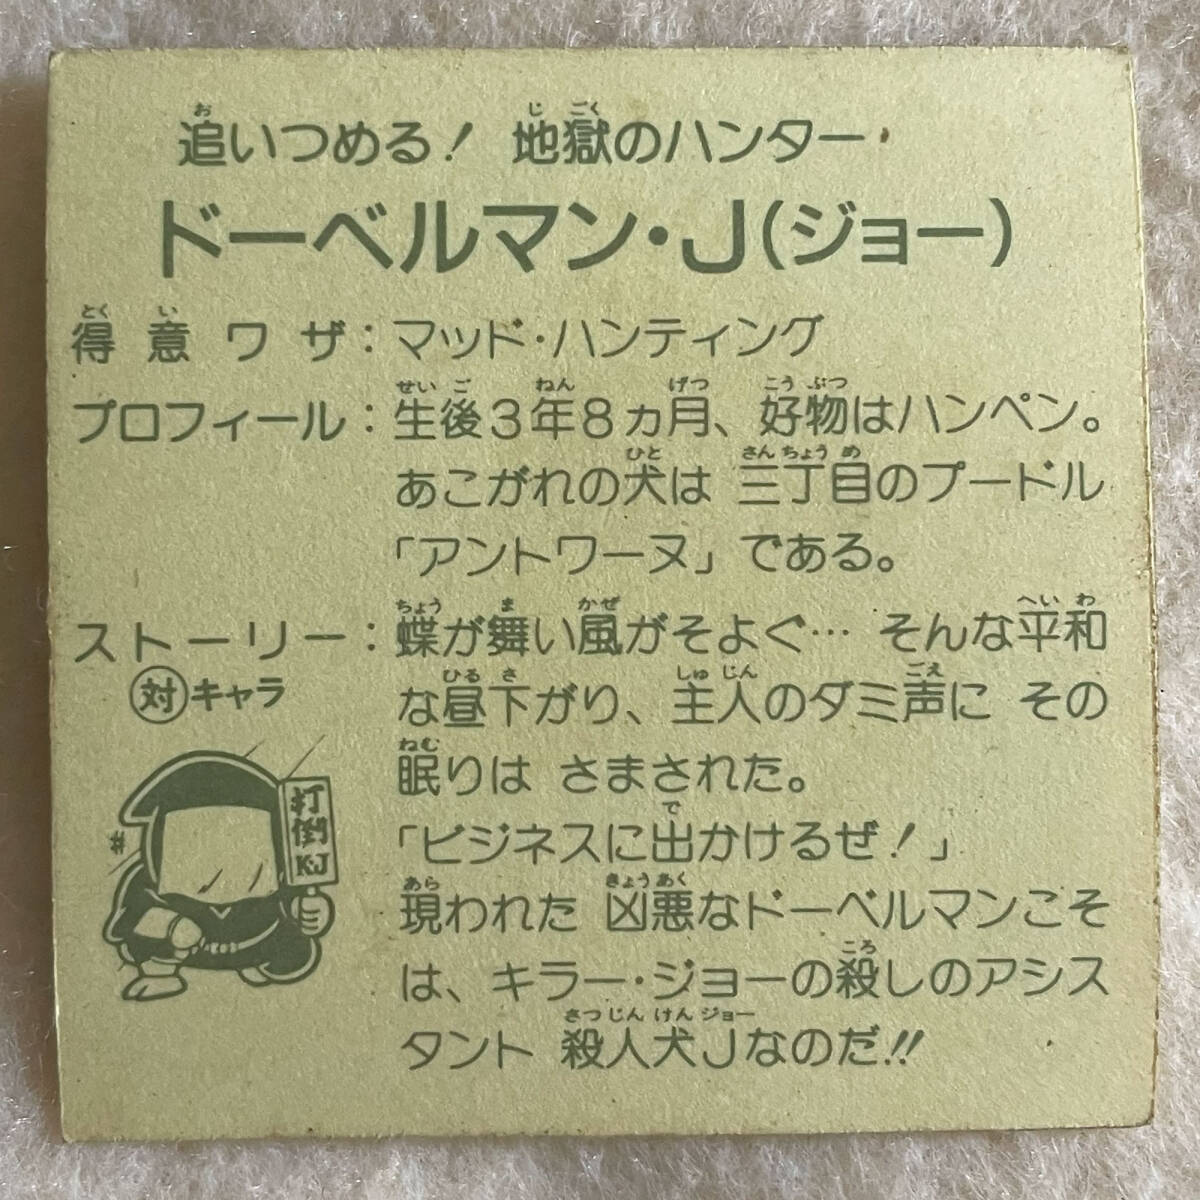 追いつめる! 地獄のハンター
ドーベルマン・J(ジョー)
得意ワザ:マッド・ハンティング
プロフィール:生後3年8ヵ月、好物はハンペン。
あこがれの犬は 三丁目のプードル
「アントワーヌ」である。
ストーリー:蝶が舞い風がそよぐ… そんな平和
対キャラ
な昼下がり、主人のダミ声に その
眠りは さまされた。
「ビジネスに出かけるぜ!」
現われた 凶悪なドーベルマンこそ
は、キラー・ジョーの殺しのアシス
タント 殺人犬Jなのだ!!
打倒
K・J